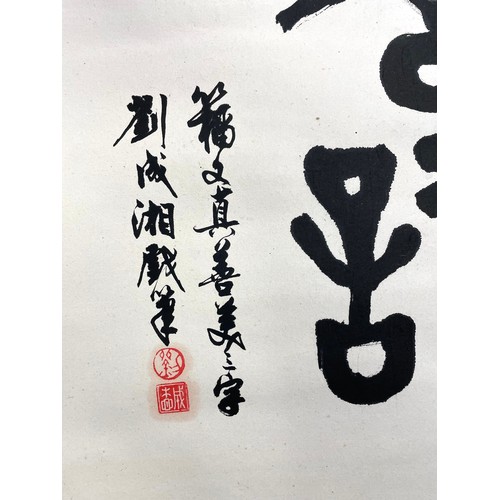 籀文真善美三字
劉成湘戲筆